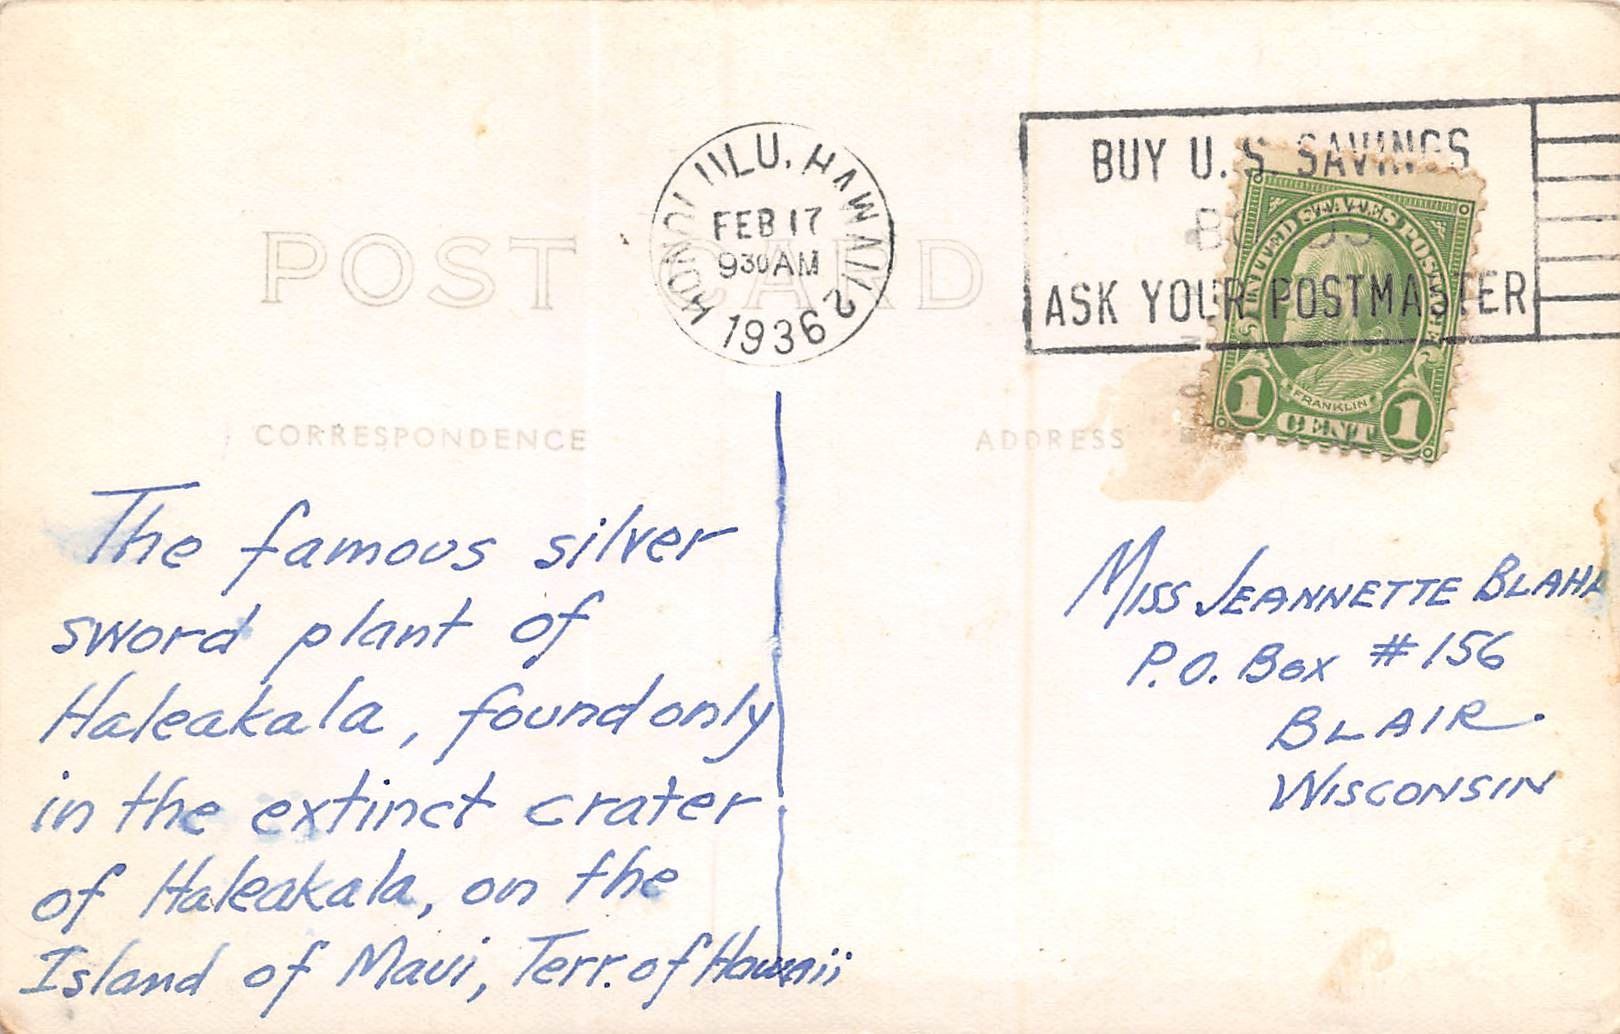 POST CARD
HONOLULU, HAWAII 2
FEB 17
9 30 AM
1936
BUY U.S. SAVINGS
BONDS
ASK YOUR POSTMASTER
UNITED STATES POSTAGE
FRANKLIN
1 CENT 1
CORRESPONDENCE
ADDRESS
The famous silver
sword plant of
Haleakala, found only
in the extinct crater
of Haleakala, on the
Island of Maui, Terr. of Hawaii
MISS JEANNETTE BLAHA
P.O. BOX #156
BLAIR.
WISCONSIN